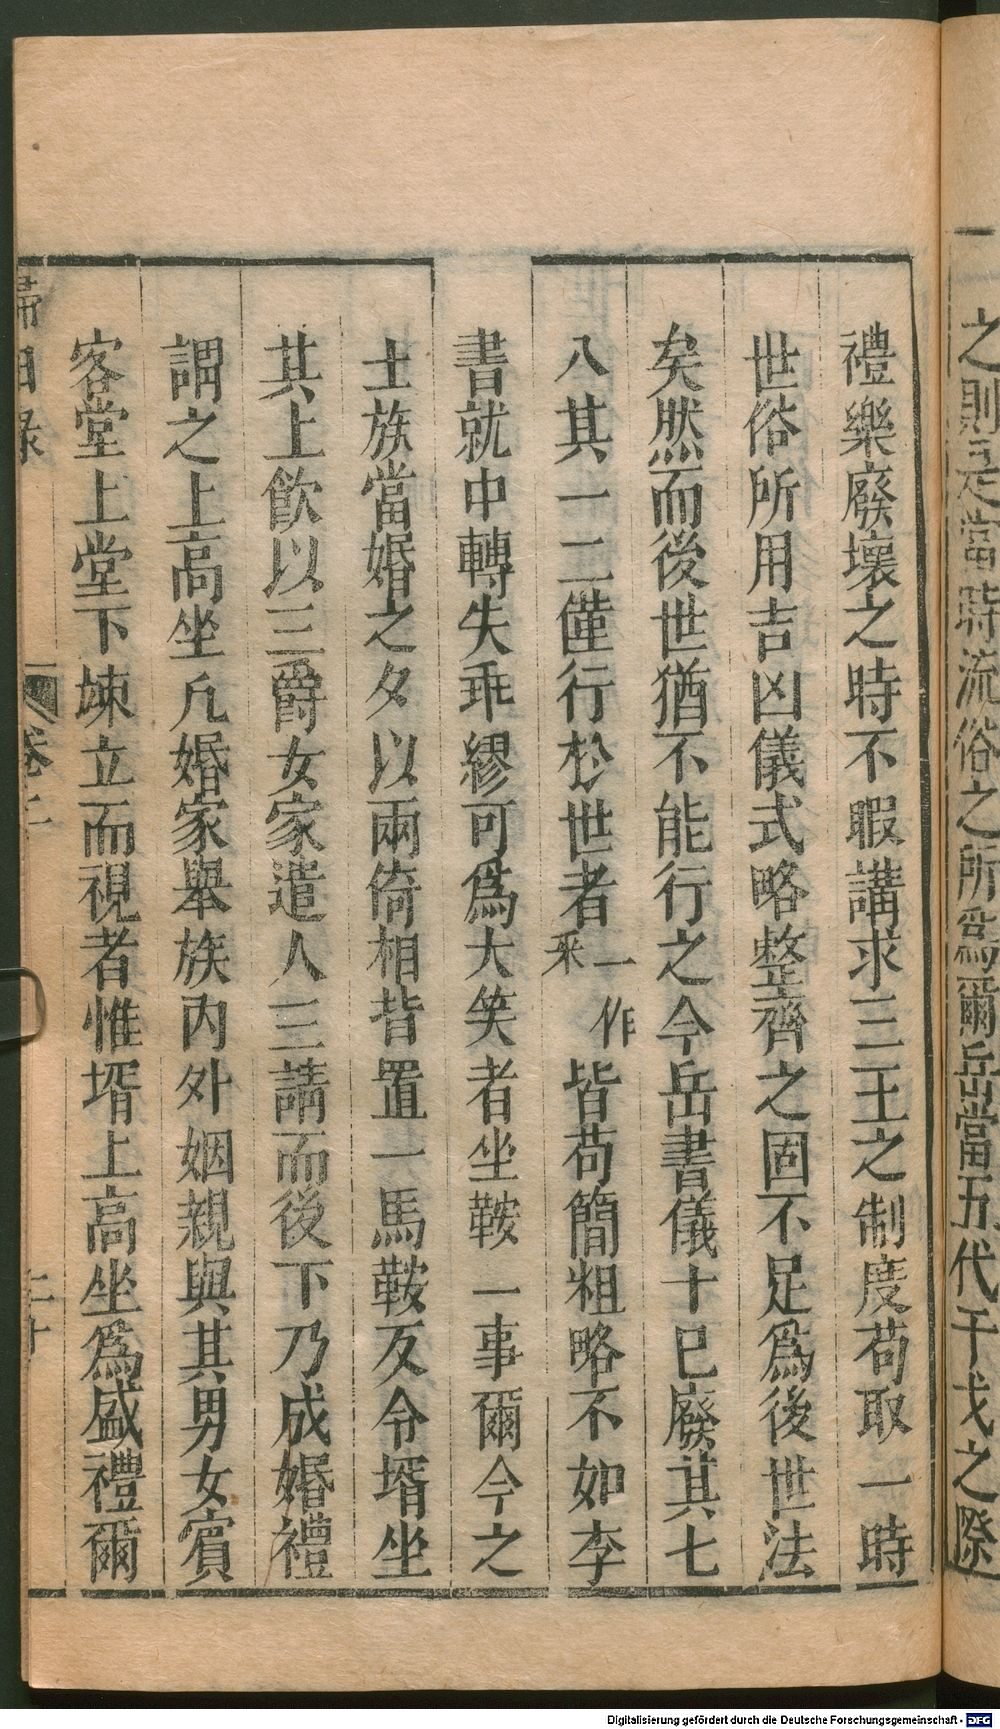 之則是當時流俗之所爲爾岳當五代干戈之際
禮樂廢壞之時不暇講求三王之制度苟取一時
世俗所用吉凶儀式略整齊之固不足爲後世法
矣然而後世猶不能行之今岳書儀十已廢其七
八其一二僅行於世者一作釆皆苟簡粗略不如李
書就中轉失乖繆可爲大笑者坐鞍一事爾今之
士族當婚之夕以兩倚相背置一馬鞍反令壻坐
其上飲以三爵女家遣人三請而後下乃成婚禮
謂之上高坐凡婚家舉族內外姻親與其男女賓
客堂上堂下竦立而視者惟壻上高坐爲盛禮爾
歸田錄 卷二 二十
Digitalisierung gefördert durch die Deutsche Forschungsgemeinschaft - DFG